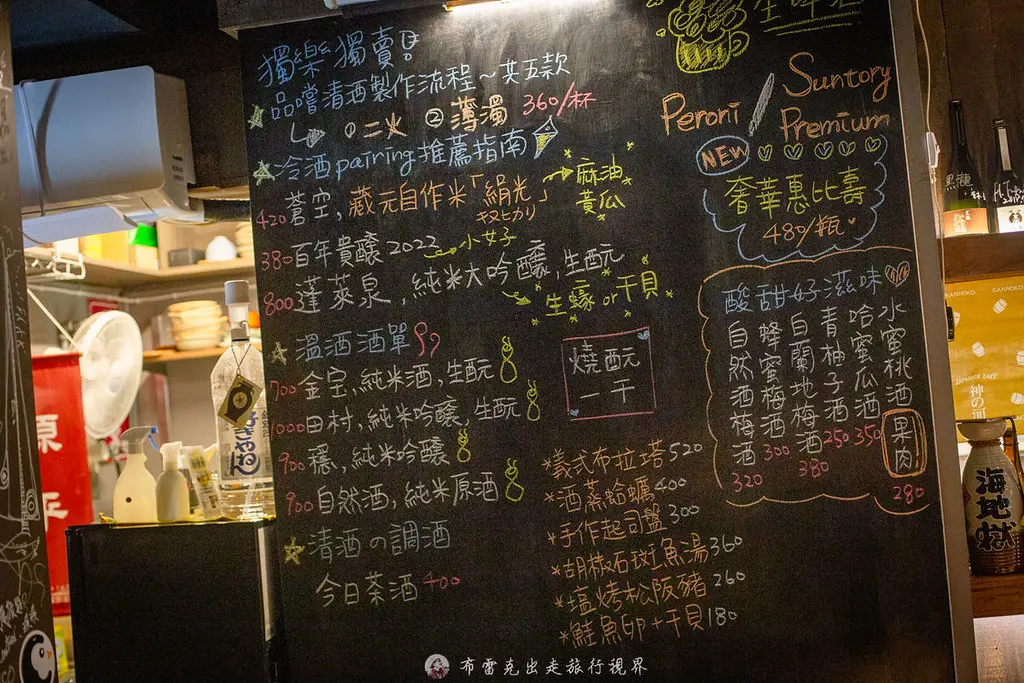 獨樂獨賣!
品嚐清酒製作流程~共五款
①二火 ②薄濁 360/杯
冷酒pairing推薦指南
420蒼空,藏元自作米「絹光」
キヌヒカリ
麻油
黃瓜
380百年貴釀2023
小女子
800蓬萊泉,純米大吟釀,生酛
生蠔 or 干貝
溫酒酒單
700金宝,純米酒,生酛
1000田村,純米吟釀,生酛
900穩,純米吟釀
900自然酒,純米原酒
清酒の調酒
今日茶酒 400
燒酎
一干
*義式布拉塔520
*酒蒸蛤蠣400
*手作起司盤300
*胡椒石斑魚湯360
*塩烤松阪豬260
*鮭魚卵+干貝180
生啤酒
Perori / Suntory
Premium
NEW
奢華惠比壽
480/瓶
酸甜好滋味
自然梅酒 320
蜂蜜梅酒 300
白蘭地梅酒 380
青柚子酒 250
哈蜜瓜酒 350
水蜜桃酒 果肉 280
原
平
黑龍
KANNOKO
神の河
海地獄
布雷克出走旅行視界